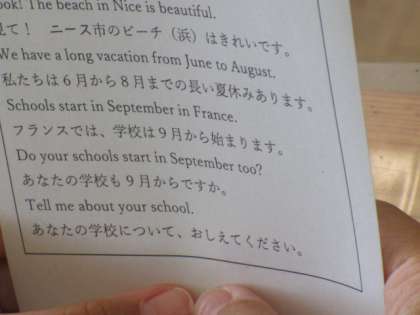 ook! The beach in Nice is beautiful.
見て！ ニース市のビーチ（浜）はきれいです。
We have a long vacation from June to August.
私たちは６月から８月までの長い夏休みあります。
Schools start in September in France.
フランスでは、学校は９月から始まります。
Do your schools start in September too?
あなたの学校も９月からですか。
Tell me about your school.
あなたの学校について、おしえてください。